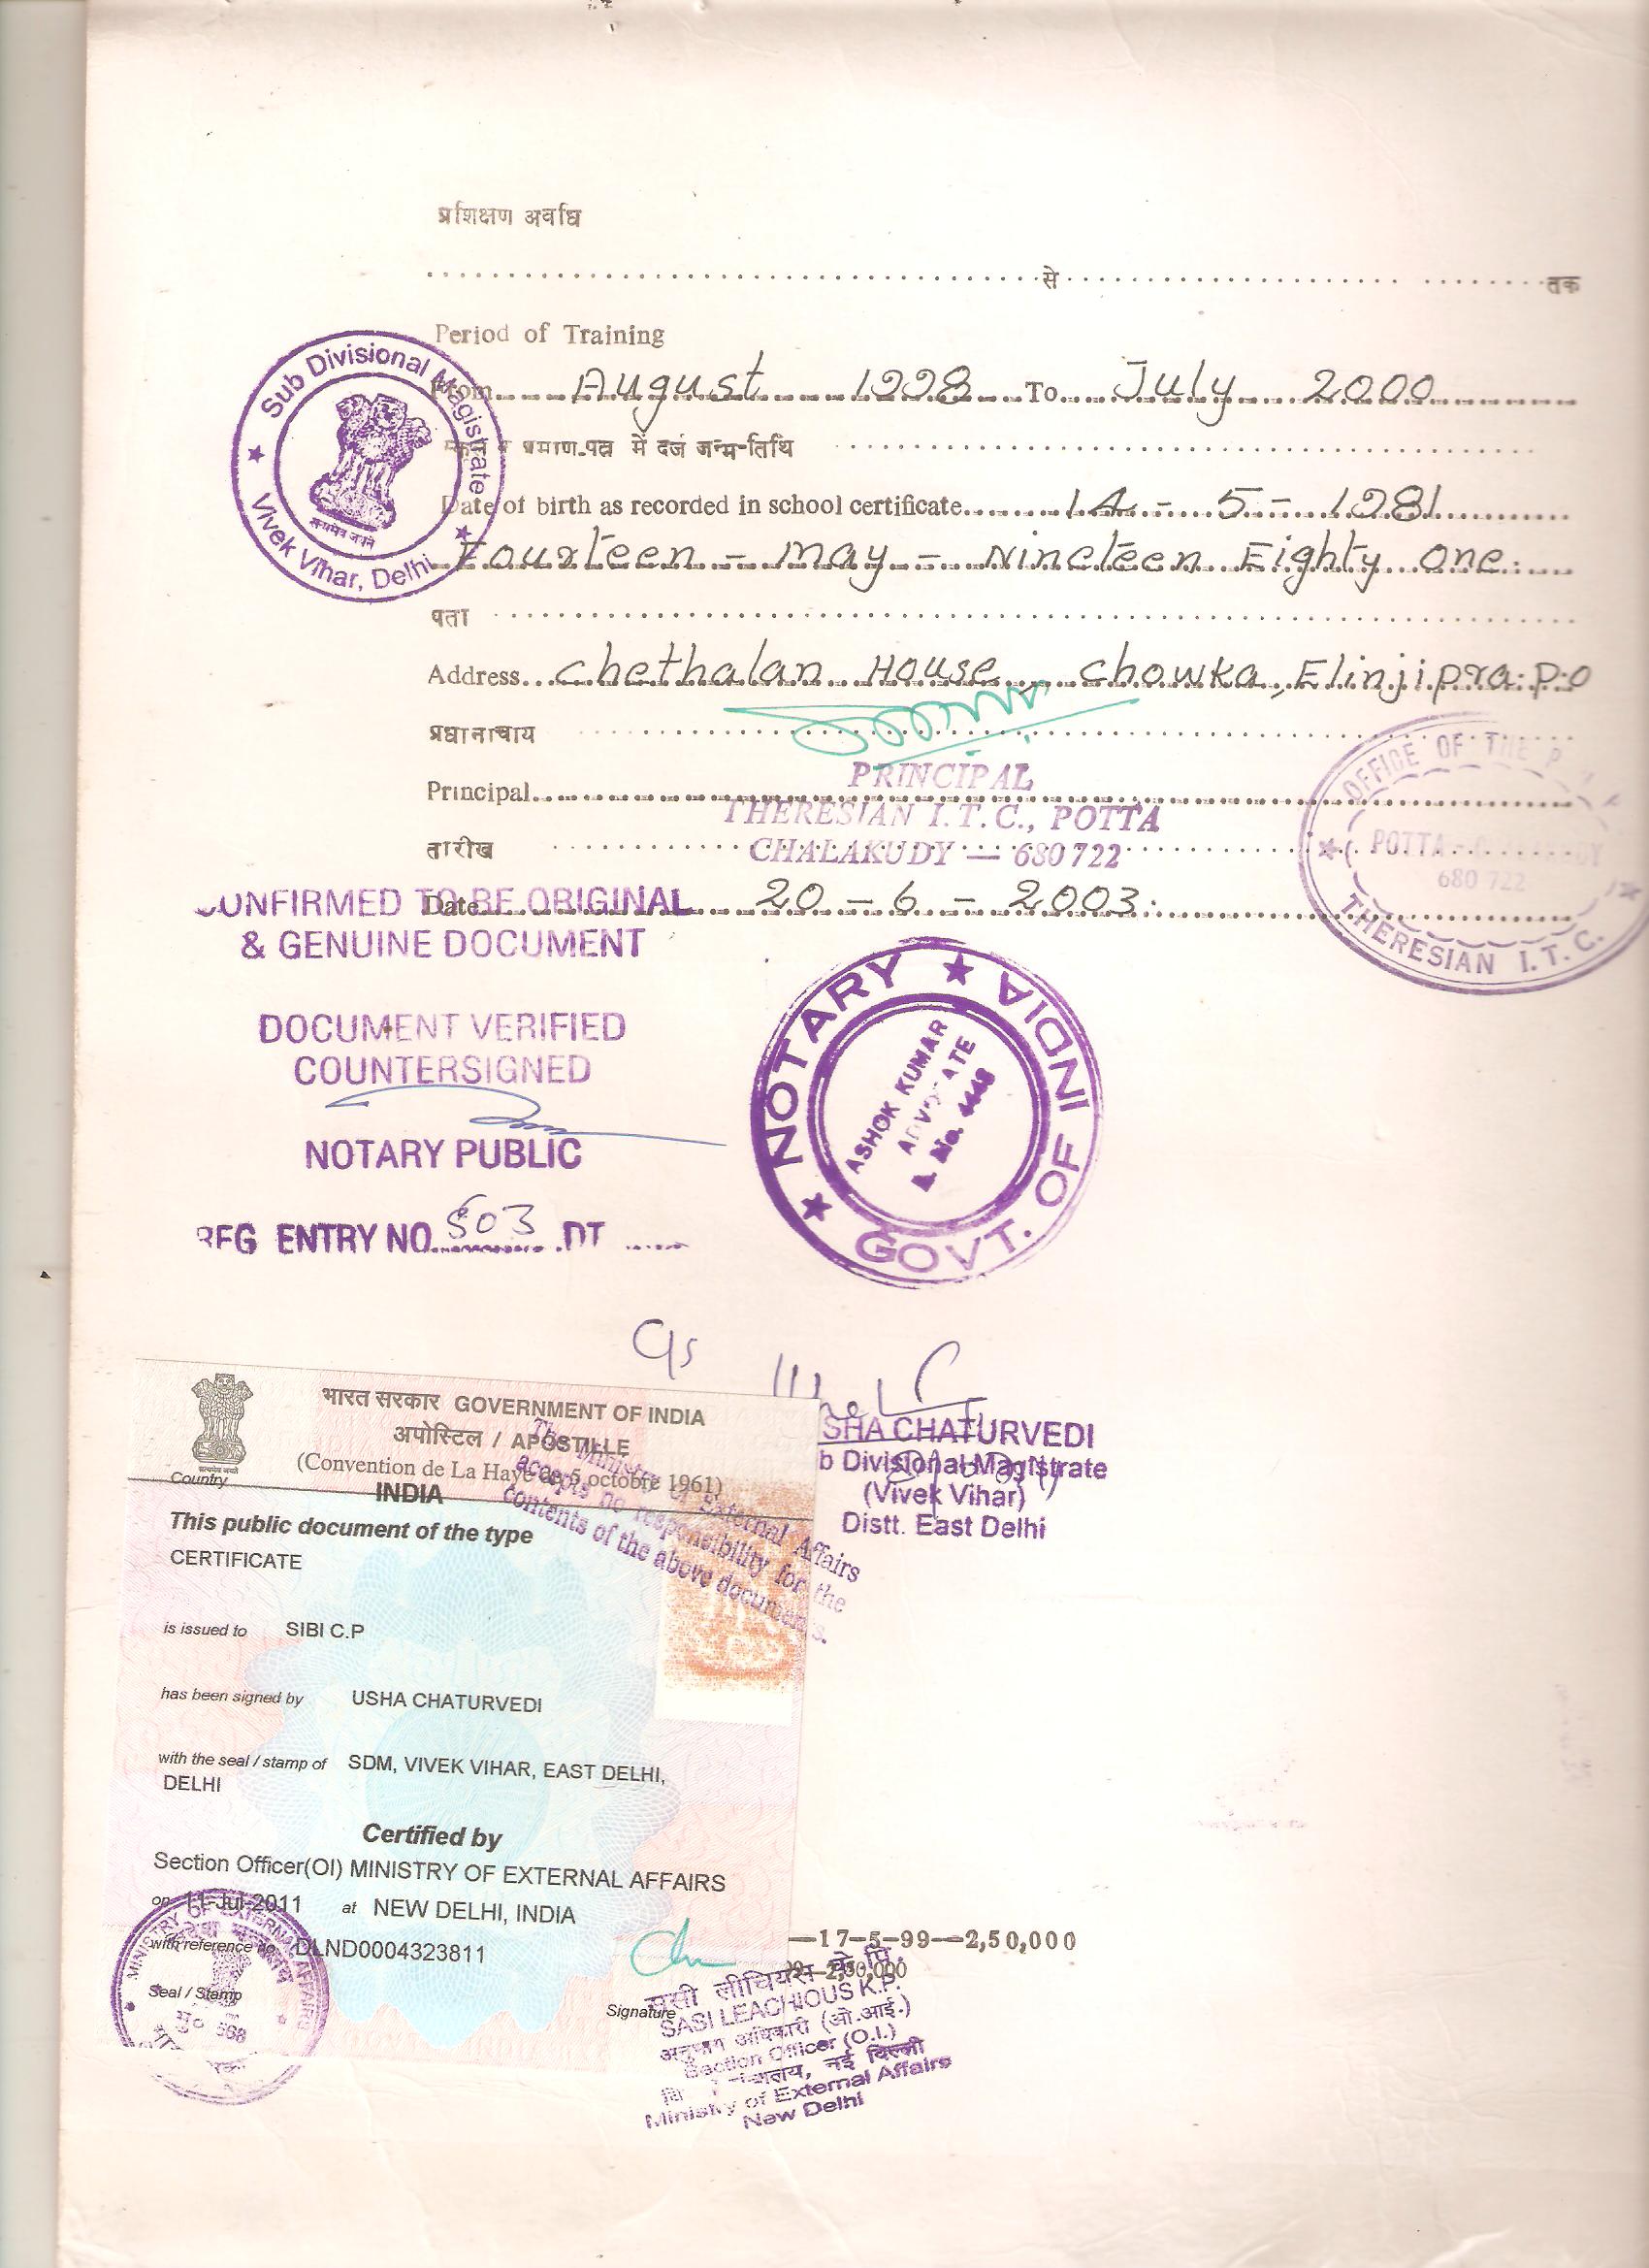 प्रशिक्षण अवधि
से तक
Period of Training
From August 1998 To July 2000
प्रमाण-पत्र में दर्ज जन्म-तिथि
Date of birth as recorded in school certificate 14 - 5 - 1981
Fourteen - may - Nineteen Eighty One.
पता
Address chethalan House, chowka, Elinjipra. P.O
प्रधानाचाय
Principal
PRINCIPAL
THERESIAN I.T.C., POTTA
CHALAKUDY — 680 722
तारीख
Date 20 - 6 - 2003.
Sub Divisional Magistrate
Vivek Vihar, Delhi
OFFICE OF THE
POTTA
680 722
THERESIAN I.T.C.
CONFIRMED TO BE ORIGINAL
& GENUINE DOCUMENT
DOCUMENT VERIFIED
COUNTERSIGNED
NOTARY PUBLIC
REG ENTRY NO. 503 DT
NOTARY
GOVT. OF INDIA
ASHOK KUMAR
No. 4448
SHA CHATURVEDI
b Divisional Magistrate
(Vivek Vihar)
Distt. East Delhi
भारत सरकार GOVERNMENT OF INDIA
अपोस्टिल / APOSTILLE
(Convention de La Haye de 5 octobre 1961)
Country
INDIA
The Ministry of External Affairs
accepts no responsibility for the
contents of the above documents.
This public document of the type
CERTIFICATE
is issued to SIBI C.P
has been signed by USHA CHATURVEDI
with the seal / stamp of SDM, VIVEK VIHAR, EAST DELHI,
DELHI
Certified by
Section Officer(OI) MINISTRY OF EXTERNAL AFFAIRS
on 11-Jul-2011 at NEW DELHI, INDIA
with reference no. DLND0004323811
Seal / Stamp
MINISTRY OF EXTERNAL AFFAIRS
Signature
—17-5-99—2,50,000
SASI LEACHIOUS K.P.
अनुभाग अधिकारी (ओ.आई.)
Section Officer (O.I.)
नई दिल्ली
Ministry of External Affairs
New Delhi